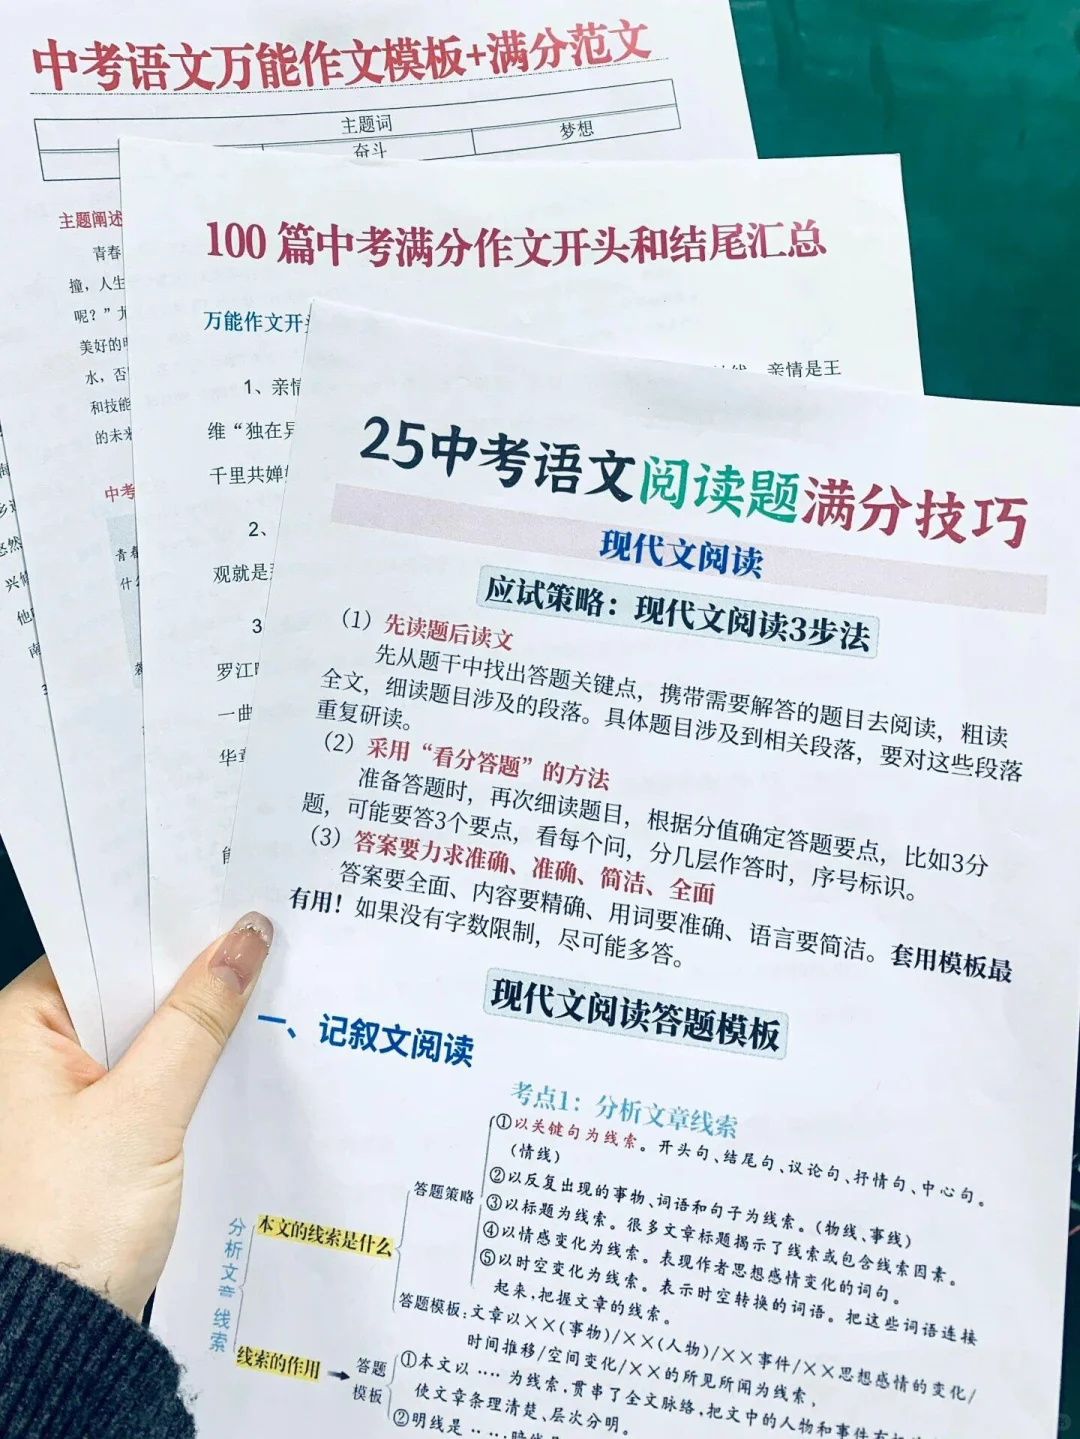 中考语文万能作文模板+满分范文
主题词
奋斗
梦想
主题阐述
青春
撞，人生
呢？”
美好的
水，否
和技能
的未来
中考
青春
什么
100篇中考满分作文开头和结尾汇总
万能作文开头
1、亲情
亲情是王
维“独在异
千里共婵娟
2、
观就是
3
罗江
一曲
华章
25中考语文阅读题满分技巧
现代文阅读
应试策略：现代文阅读3步法
（1）先读题后读文
先从题干中找出答题关键点，携带需要解答的题目去阅读，粗读
全文，细读题目涉及的段落。具体题目涉及到相关段落，要对这些段落
重复研读。
（2）采用“看分答题”的方法
准备答题时，再次细读题目，根据分值确定答题要点，比如3分
题，可能要答3个要点，看每个问，分几层作答时，序号标识。
（3）答案要力求准确、准确、简洁、全面
答案要全面、内容要精确、用词要准确、语言要简洁。套用模板最
有用！如果没有字数限制，尽可能多答。
现代文阅读答题模板
一、记叙文阅读
考点1：分析文章线索
分析文章线索
本文的线索是什么
答题策略
①以关键句为线索。开头句、结尾句、议论句、抒情句、中心句。
（情线）
②以反复出现的事物、词语和句子为线索。（物线、事线）
③以标题为线索。很多文章标题揭示了线索或包含线索因素。
④以情感变化为线索。表现作者思想感情变化的词句。
⑤以时空变化为线索。表示时空转换的词语。把这些词语连接
起来，把握文章的线索。
答题模板：文章以××(事物)/××(人物)/××事件/××思想感情的变化/
时间推移/空间变化/××的所见所闻为线索，
线索的作用
答题
模板
①本文以……为线索，贯串了全文脉络，把文中的人物和事件有
使文章条理清楚、层次分明。
②明线是……暗线